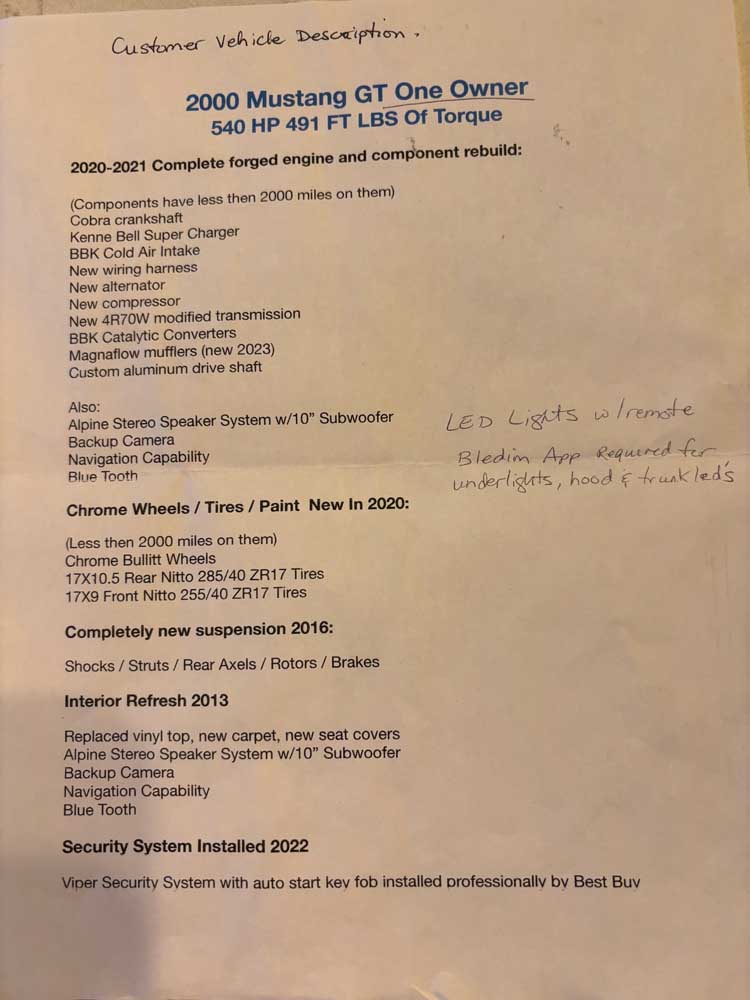 Customer Vehicle Description.
2000 Mustang GT One Owner
540 HP 491 FT LBS Of Torque
2020-2021 Complete forged engine and component rebuild:
(Components have less then 2000 miles on them)
Cobra crankshaft
Kenne Bell Super Charger
BBK Cold Air Intake
New wiring harness
New alternator
New compressor
New 4R70W modified transmission
BBK Catalytic Converters
Magnaflow mufflers (new 2023)
Custom aluminum drive shaft
Also:
Alpine Stereo Speaker System w/10” Subwoofer
Backup Camera
Navigation Capability
Blue Tooth
LED Lights w/remote
Bledim App Required for
underlights, hood & trunk led's
Chrome Wheels / Tires / Paint New In 2020:
(Less then 2000 miles on them)
Chrome Bullitt Wheels
17X10.5 Rear Nitto 285/40 ZR17 Tires
17X9 Front Nitto 255/40 ZR17 Tires
Completely new suspension 2016:
Shocks / Struts / Rear Axels / Rotors / Brakes
Interior Refresh 2013
Replaced vinyl top, new carpet, new seat covers
Alpine Stereo Speaker System w/10” Subwoofer
Backup Camera
Navigation Capability
Blue Tooth
Security System Installed 2022
Viper Security System with auto start key fob installed professionally by Best Buy